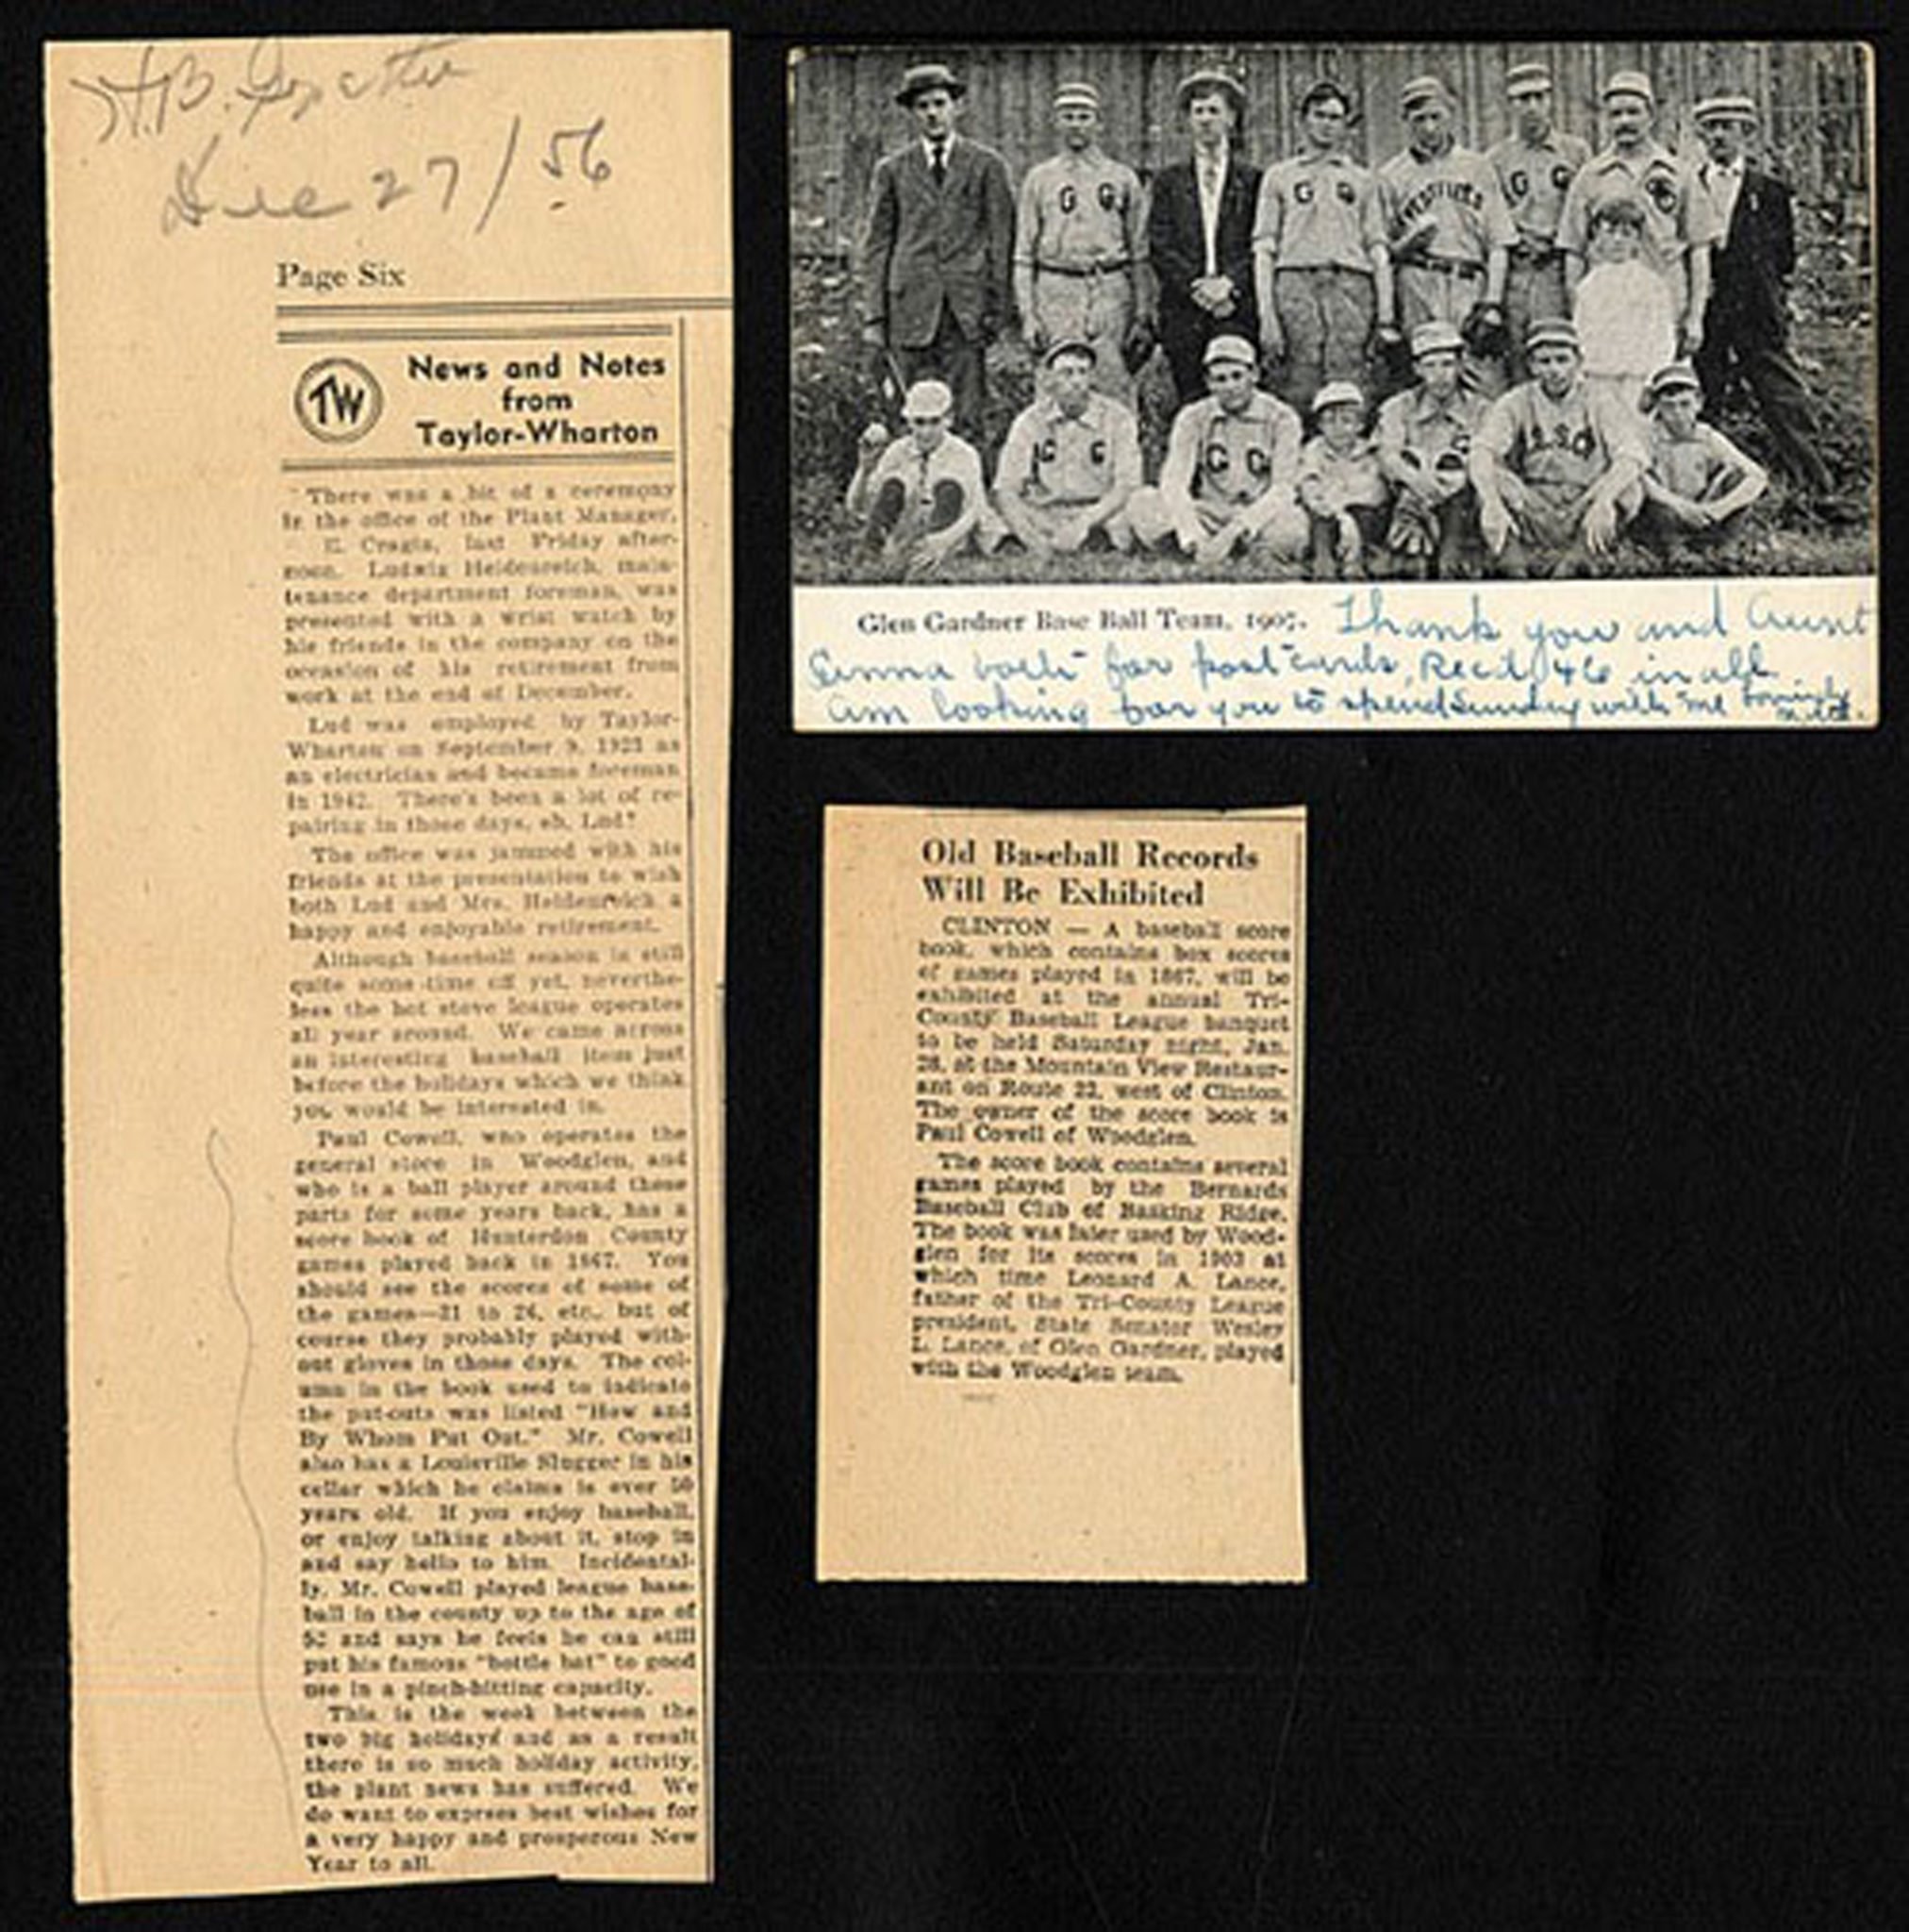 Dec 27/56
Page Six
TW
News and Notes
from
Taylor-Wharton
There was a bit of a ceremony
in the office of the Plant Manager,
E. Cragin, last Friday after-
noon. Ludwig Heidenreich, main-
tenance department foreman, was
presented with a wrist watch by
his friends in the company on the
occasion of his retirement from
work at the end of December.
Lud was employed by Taylor-
Wharton on September 9, 1921 as
an electrician and became foreman
in 1942. There's been a lot of re-
pairing in those days, eh, Lud?
The office was jammed with his
friends at the presentation to wish
both Lud and Mrs. Heidenreich a
happy and enjoyable retirement.
Although baseball season is still
quite some time off yet, neverthe-
less the hot stove league operates
all year around. We came across
an interesting baseball item just
before the holidays which we think
you would be interested in.
Paul Cowell, who operates the
general store in Woodglen, and
who is a ball player around these
parts for some years back, has a
score book of Hunterdon County
games played back in 1867. You
should see the scores of some of
the games—21 to 24, etc., but of
course they probably played with-
out gloves in those days. The col-
umn in the book used to indicate
the put-outs was listed "How and
By Whom Put Out." Mr. Cowell
also has a Louisville Slugger in his
cellar which he claims is over 50
years old. If you enjoy baseball,
or enjoy talking about it, stop in
and say hello to him. Incidental-
ly, Mr. Cowell played league base-
ball in the county up to the age of
52 and says he feels he can still
put his famous "bottle bat" to good
use in a pinch-hitting capacity.
This is the week between the
two big holidays and as a result
there is so much holiday activity,
the plant news has suffered. We
do want to express best wishes for
a very happy and prosperous New
Year to all.
G G
G G
G G
G G
G G
Glen Gardner Base Ball Team, 1907. Thank you and Aunt
Emma both for post cards, Rec'd 46 in all
am looking for you to spend Sunday with me
Old Baseball Records
Will Be Exhibited
CLINTON — A baseball score
book, which contains box scores
of games played in 1867, will be
exhibited at the annual Tri-
County Baseball League banquet
to be held Saturday night, Jan.
28, at the Mountain View Restaur-
ant on Route 22, west of Clinton.
The owner of the score book is
Paul Cowell of Woodglen.
The score book contains several
games played by the Bernards
Baseball Club of Basking Ridge.
The book was later used by Wood-
glen for its scores in 1903 at
which time Leonard A. Lance,
father of the Tri-County League
president, State Senator Wesley
L. Lance, of Glen Gardner, played
with the Woodglen team.